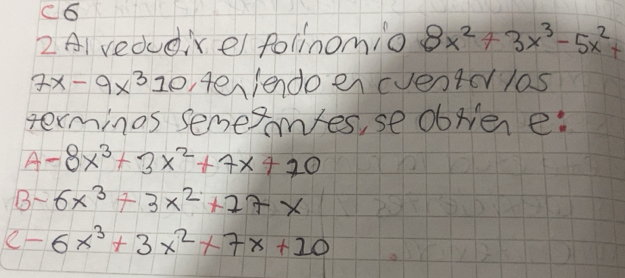 C6
2 Al reducir el polinomio 8x² + 3x³ - 5x² +
7x - 9x³ 10, teniendo en cuenta los
terminos semejantes, se obtiene:
A - 8x³ + 3x² + 7x + 10
B - 6x³ + 3x² + 17x
C - 6x³ + 3x² + 7x + 10